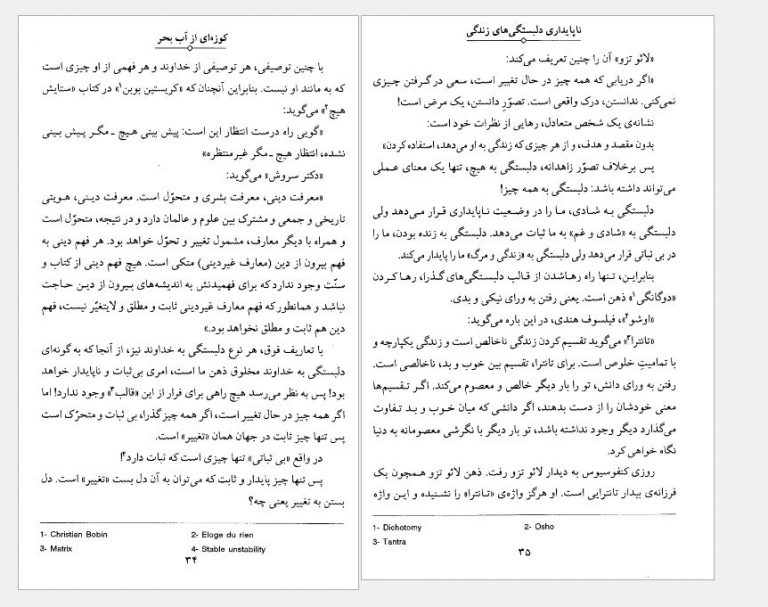 کوزه‌ای از آب بحر
با چنین توصیفی، هر توصیفی از خداوند و هر فهمی از او چیزی است
که به مانند او نیست. بنابراین آنچنان که «کریستین بوبن۱» در کتاب «ستایش
هیچ۲» می‌گوید:
«گویی راه درست انتظار این است: پیش بینی هیچ ـ مگر پیش بینی
نشده، انتظار هیچ ـ مگر غیرمنتظره»
«دکتر سروش» می‌گوید:
«معرفت دینی، معرفت بشری و متحوّل است. معرفت دینی، هویتی
تاریخی و جمعی و مشترک بین علوم و عالمان دارد و در نتیجه، متحوّل است
و همراه با دیگر معارف، مشمول تغییر و تحوّل خواهد بود. هر فهم دینی به
فهم بیرون از دین (معارف غیردینی) متکی است. هیچ فهم دینی از کتاب و
سنّت وجود ندارد که برای فهمیدنش به اندیشه‌های بیرون از دین حاجت
نباشد و همانطور که فهم معارف غیردینی ثابت و مطلق و لایتغیّر نیست، فهم
دین هم ثابت و مطلق نخواهد بود.»
با تعاریف فوق، هر نوع دلبستگی به خداوند نیز، از آنجا که به گونه‌ای
دلبستگی به خداوند مخلوق ذهن ما است، امری بی‌ثبات و ناپایدار خواهد
بود! پس به نظر می‌رسد هیچ راهی برای فرار از این «قالب۳» وجود ندارد! اما
اگر همه چیز در حال تغییر است، اگر همه چیز گذرا، بی ثبات و متحرّک است
پس تنها چیز ثابت در جهان همان «تغییر» است.
در واقع «بی ثباتی» تنها چیزی است که ثبات دارد۴!
پس تنها چیز پایدار و ثابت که می‌توان به آن دل بست «تغییر» است. دل
بستن به تغییر یعنی چه؟
1- Christian Bobin 2- Eloge du rien
3- Matrix 4- Stable unstability
۳۴
ناپایداری دلبستگی‌های زندگی
«لائو تزو» آن را چنین تعریف می‌کند:
«اگر دریابی که همه چیز در حال تغییر است، سعی در گرفتن چیزی
نمی‌کنی. ندانستن، درک واقعی است. تصوّرِ دانستن، یک مرض است!
نشانه‌ی یک شخص متعادل، رهایی از نظرات خود است:
بدون مقصد و هدف، و از هر چیزی که زندگی به او می‌دهد، استفاده کردن»
پس برخلاف تصوّر زاهدانه، دلبستگی به هیچ، تنها یک معنای عملی
می‌تواند داشته باشد: دلبستگی به همه چیز!
دلبستگی به شادی، ما را در وضعیت ناپایداری قرار می‌دهد ولی
دلبستگی به «شادی و غم» به ما ثبات می‌دهد. دلبستگی به زنده بودن، ما را
در بی ثباتی قرار می‌دهد ولی دلبستگی به «زندگی و مرگ» ما را پایدار می‌کند.
بنابراین، تنها راه رهاشدن از قالب دلبستگی‌های گذرا، رها کردن
«دوگانگی۱» ذهن است. یعنی رفتن به ورای نیکی و بدی.
«اوشو۲»، فیلسوف هندی، در این باره می‌گوید:
«تانترا۳» می‌گوید تقسیم کردن زندگی ناخالص است و زندگی یکپارچه و
با تمامیتِ خلوص است. برای تانترا، تقسیم بین خوب و بد، ناخالصی است.
رفتن به ورای دانش، تو را بار دیگر خالص و معصوم می‌کند. اگر تقسیم‌ها
معنی خودشان را از دست بدهند، اگر دانشی که میان خوب و بد تفاوت
می‌گذارد دیگر وجود نداشته باشد، تو بار دیگر با نگرشی معصومانه به دنیا
نگاه خواهی کرد.
روزی کنفوسیوس به دیدار لائو تزو رفت. ذهن لائو تزو همچون یک
فرزانه‌ی بیدار تانترایی است. او هرگز واژه‌ی «تانترا» را نشنیده و این واژه
1- Dichotomy 2- Osho
3- Tantra
۳۵